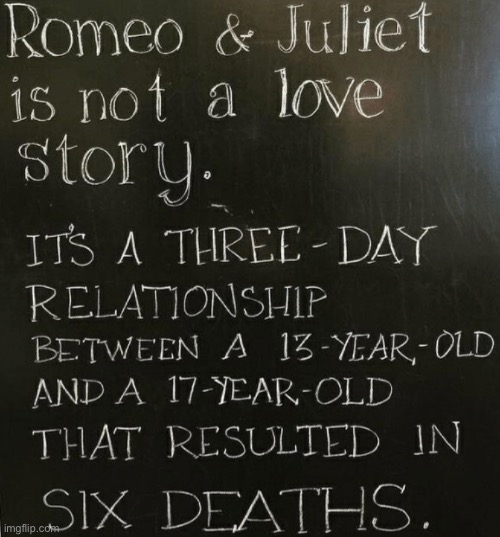 Romeo & Juliet
is not a love
story.
IT'S A THREE-DAY
RELATIONSHIP
BETWEEN A 13-YEAR-OLD
AND A 17-YEAR-OLD
THAT RESULTED IN
SIX DEATHS.
imgflip.com